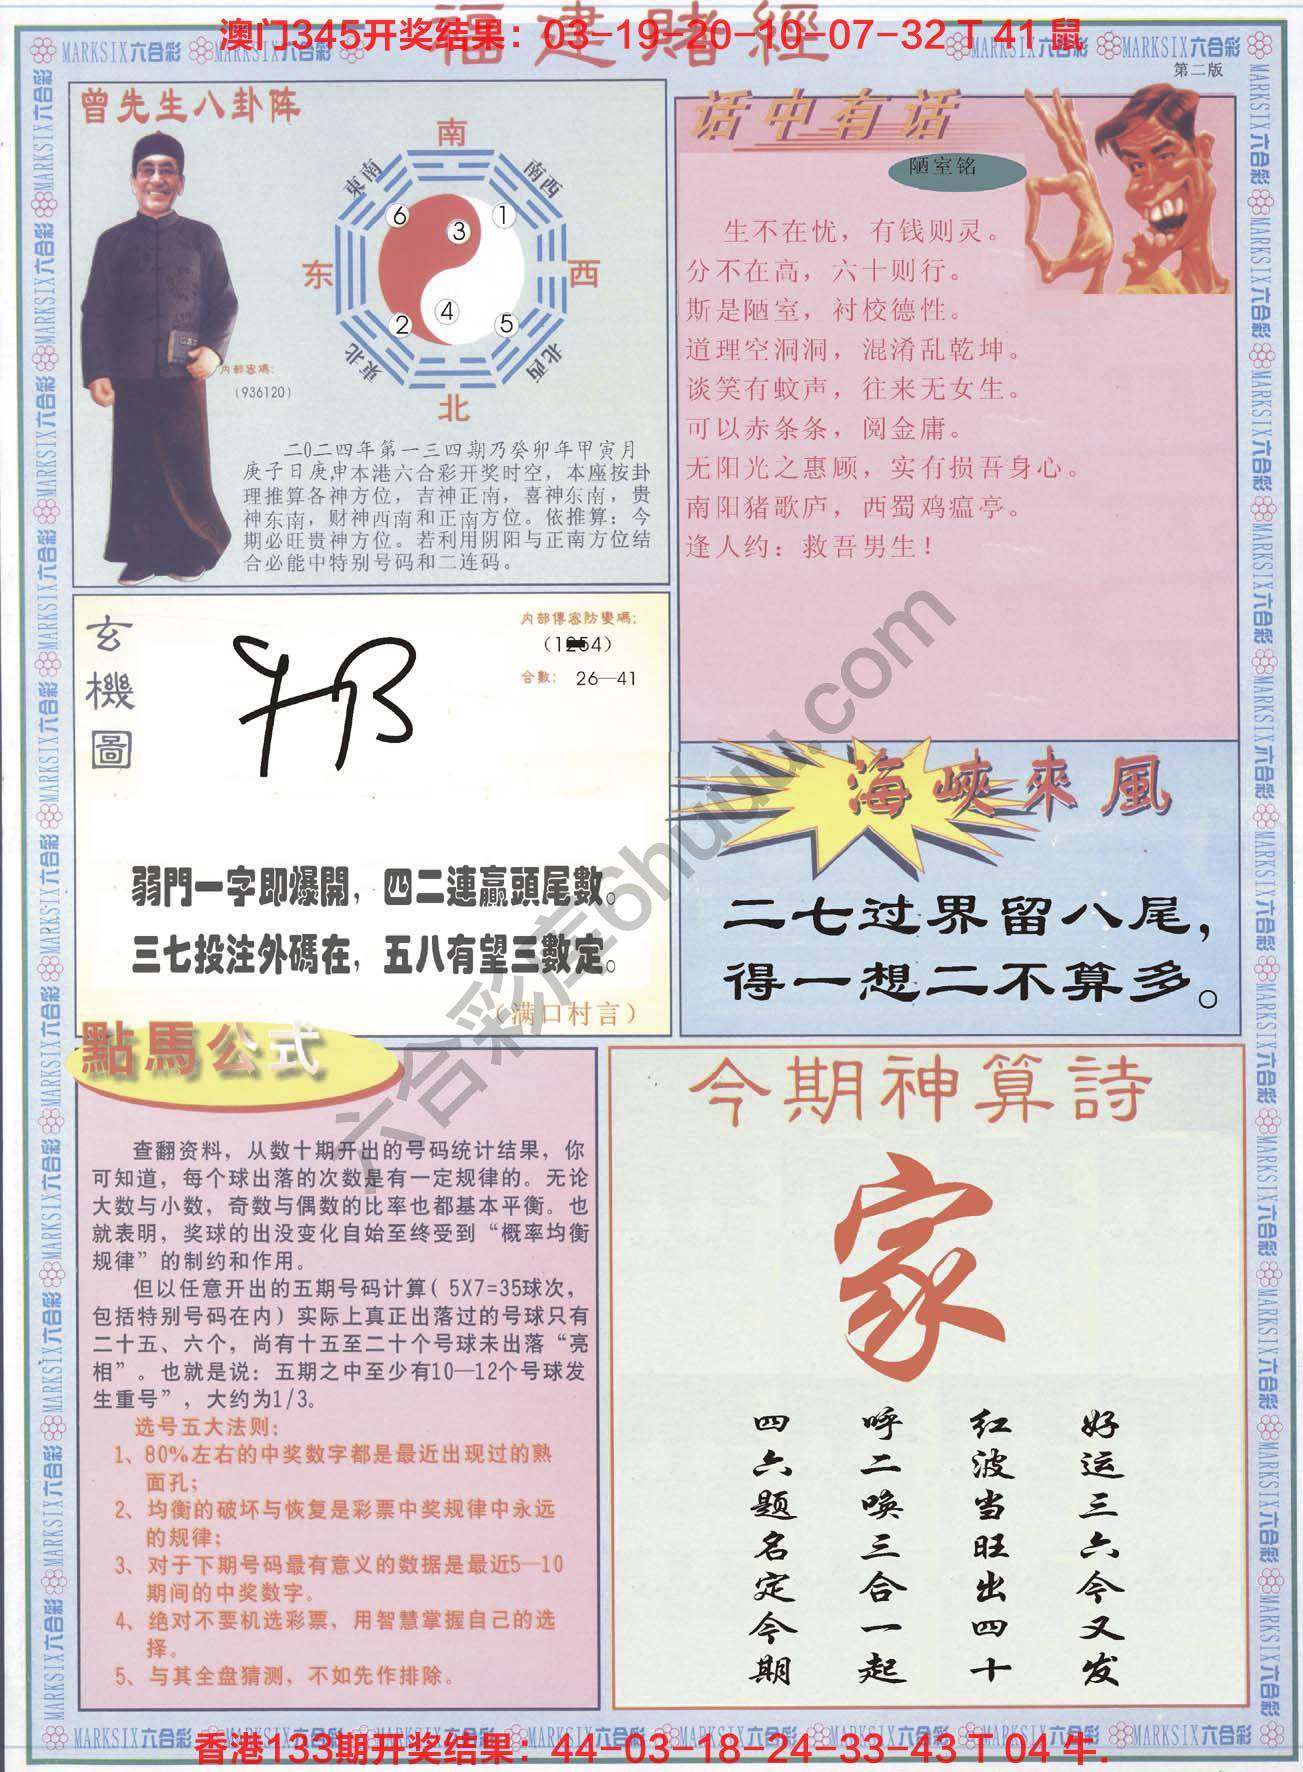 福建賭經
澳门345开奖结果：03-19-20-10-07-32 T 41 鼠
MARKSIX六合彩 MARKSIX六合彩 MARKSIX六合彩 MARKSIX六合彩
第二版
曾先生八卦阵
南
東南
南西
6
3
1
东
西
4
2
5
東北
北西
北
内部密碼：
(936120)
二0二四年第一三四期乃癸卯年甲寅月
庚子日庚申本港六合彩开奖时空，本座按卦
理推算各神方位，吉神正南，喜神东南，贵
神东南，财神西南和正南方位。依推算：今
期必旺贵神方位。若利用阴阳与正南方位结
合必能中特别号码和二连码。
话中有话
陋室铭
生不在忧，有钱则灵。
分不在高，六十则行。
斯是陋室，衬校德性。
道理空洞洞，混淆乱乾坤。
谈笑有蚊声，往来无女生。
可以赤条条，阅金庸。
无阳光之惠顾，实有损吾身心。
南阳猪歌庐，西蜀鸡瘟亭。
逢人约：救吾男生！
玄機圖
内部傳密防變碼：
合數： 26—41
弱門一字即爆開，四二連贏頭尾數。
三七投注外碼在，五八有望三數定。
（满口村言）
海峽來風
二七过界留八尾，
得一想二不算多。
點馬公式
查翻资料，从数十期开出的号码统计结果，你
可知道，每个球出落的次数是有一定规律的。无论
大数与小数，奇数与偶数的比率也都基本平衡。也
就表明，奖球的出没变化自始至终受到“概率均衡
规律”的制约和作用。
但以任意开出的五期号码计算（5X7=35球次，
包括特别号码在内）实际上真正出落过的号球只有
二十五、六个，尚有十五至二十个号球未出落“亮
相”。也就是说：五期之中至少有10—12个号球发
生重号”，大约为1/3。
选号五大法则：
1、80%左右的中奖数字都是最近出现过的熟
面孔；
2、均衡的破坏与恢复是彩票中奖规律中永远
的规律；
3、对于下期号码最有意义的数据是最近5—10
期间的中奖数字。
4、绝对不要机选彩票，用智慧掌握自己的选
择。
5、与其全盘猜测，不如先作排除。
今期神算詩
家
好运三六今又发
红波当旺出四十
呼二唤三合一起
四六题名定今期
六合彩库6huuu.com
MARKSIX六合彩 MARKSIX六合彩 MARKSIX六合彩 MARKSIX六合彩 MARKSIX六合彩 MARKSIX六合彩 MARKSIX六合彩 MARKSIX六合彩
香港133期开奖结果：44-03-18-24-33-43 T 04 牛.